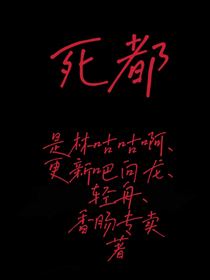 死都
是林咕咕啊、
更新吧问龙、
轻舟、
香肠专卖
著